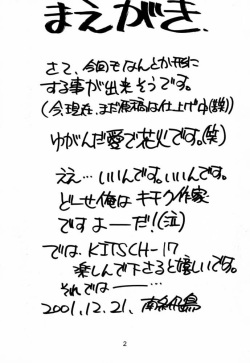 まえがき.
さて、今回もなんとか形に
する事が出来そうです。
(今現在、まだ原稿は仕上げ中(鉄))
ゆがんだ愛で花火です。(笑)
ええ…いいんです。いいんです。
どーせ俺はキチク作家
ですよーだ!(泣)
では、KITSCH-17
楽しんで下さると嬉しいです。
それでは――…
2001.12.21.
2